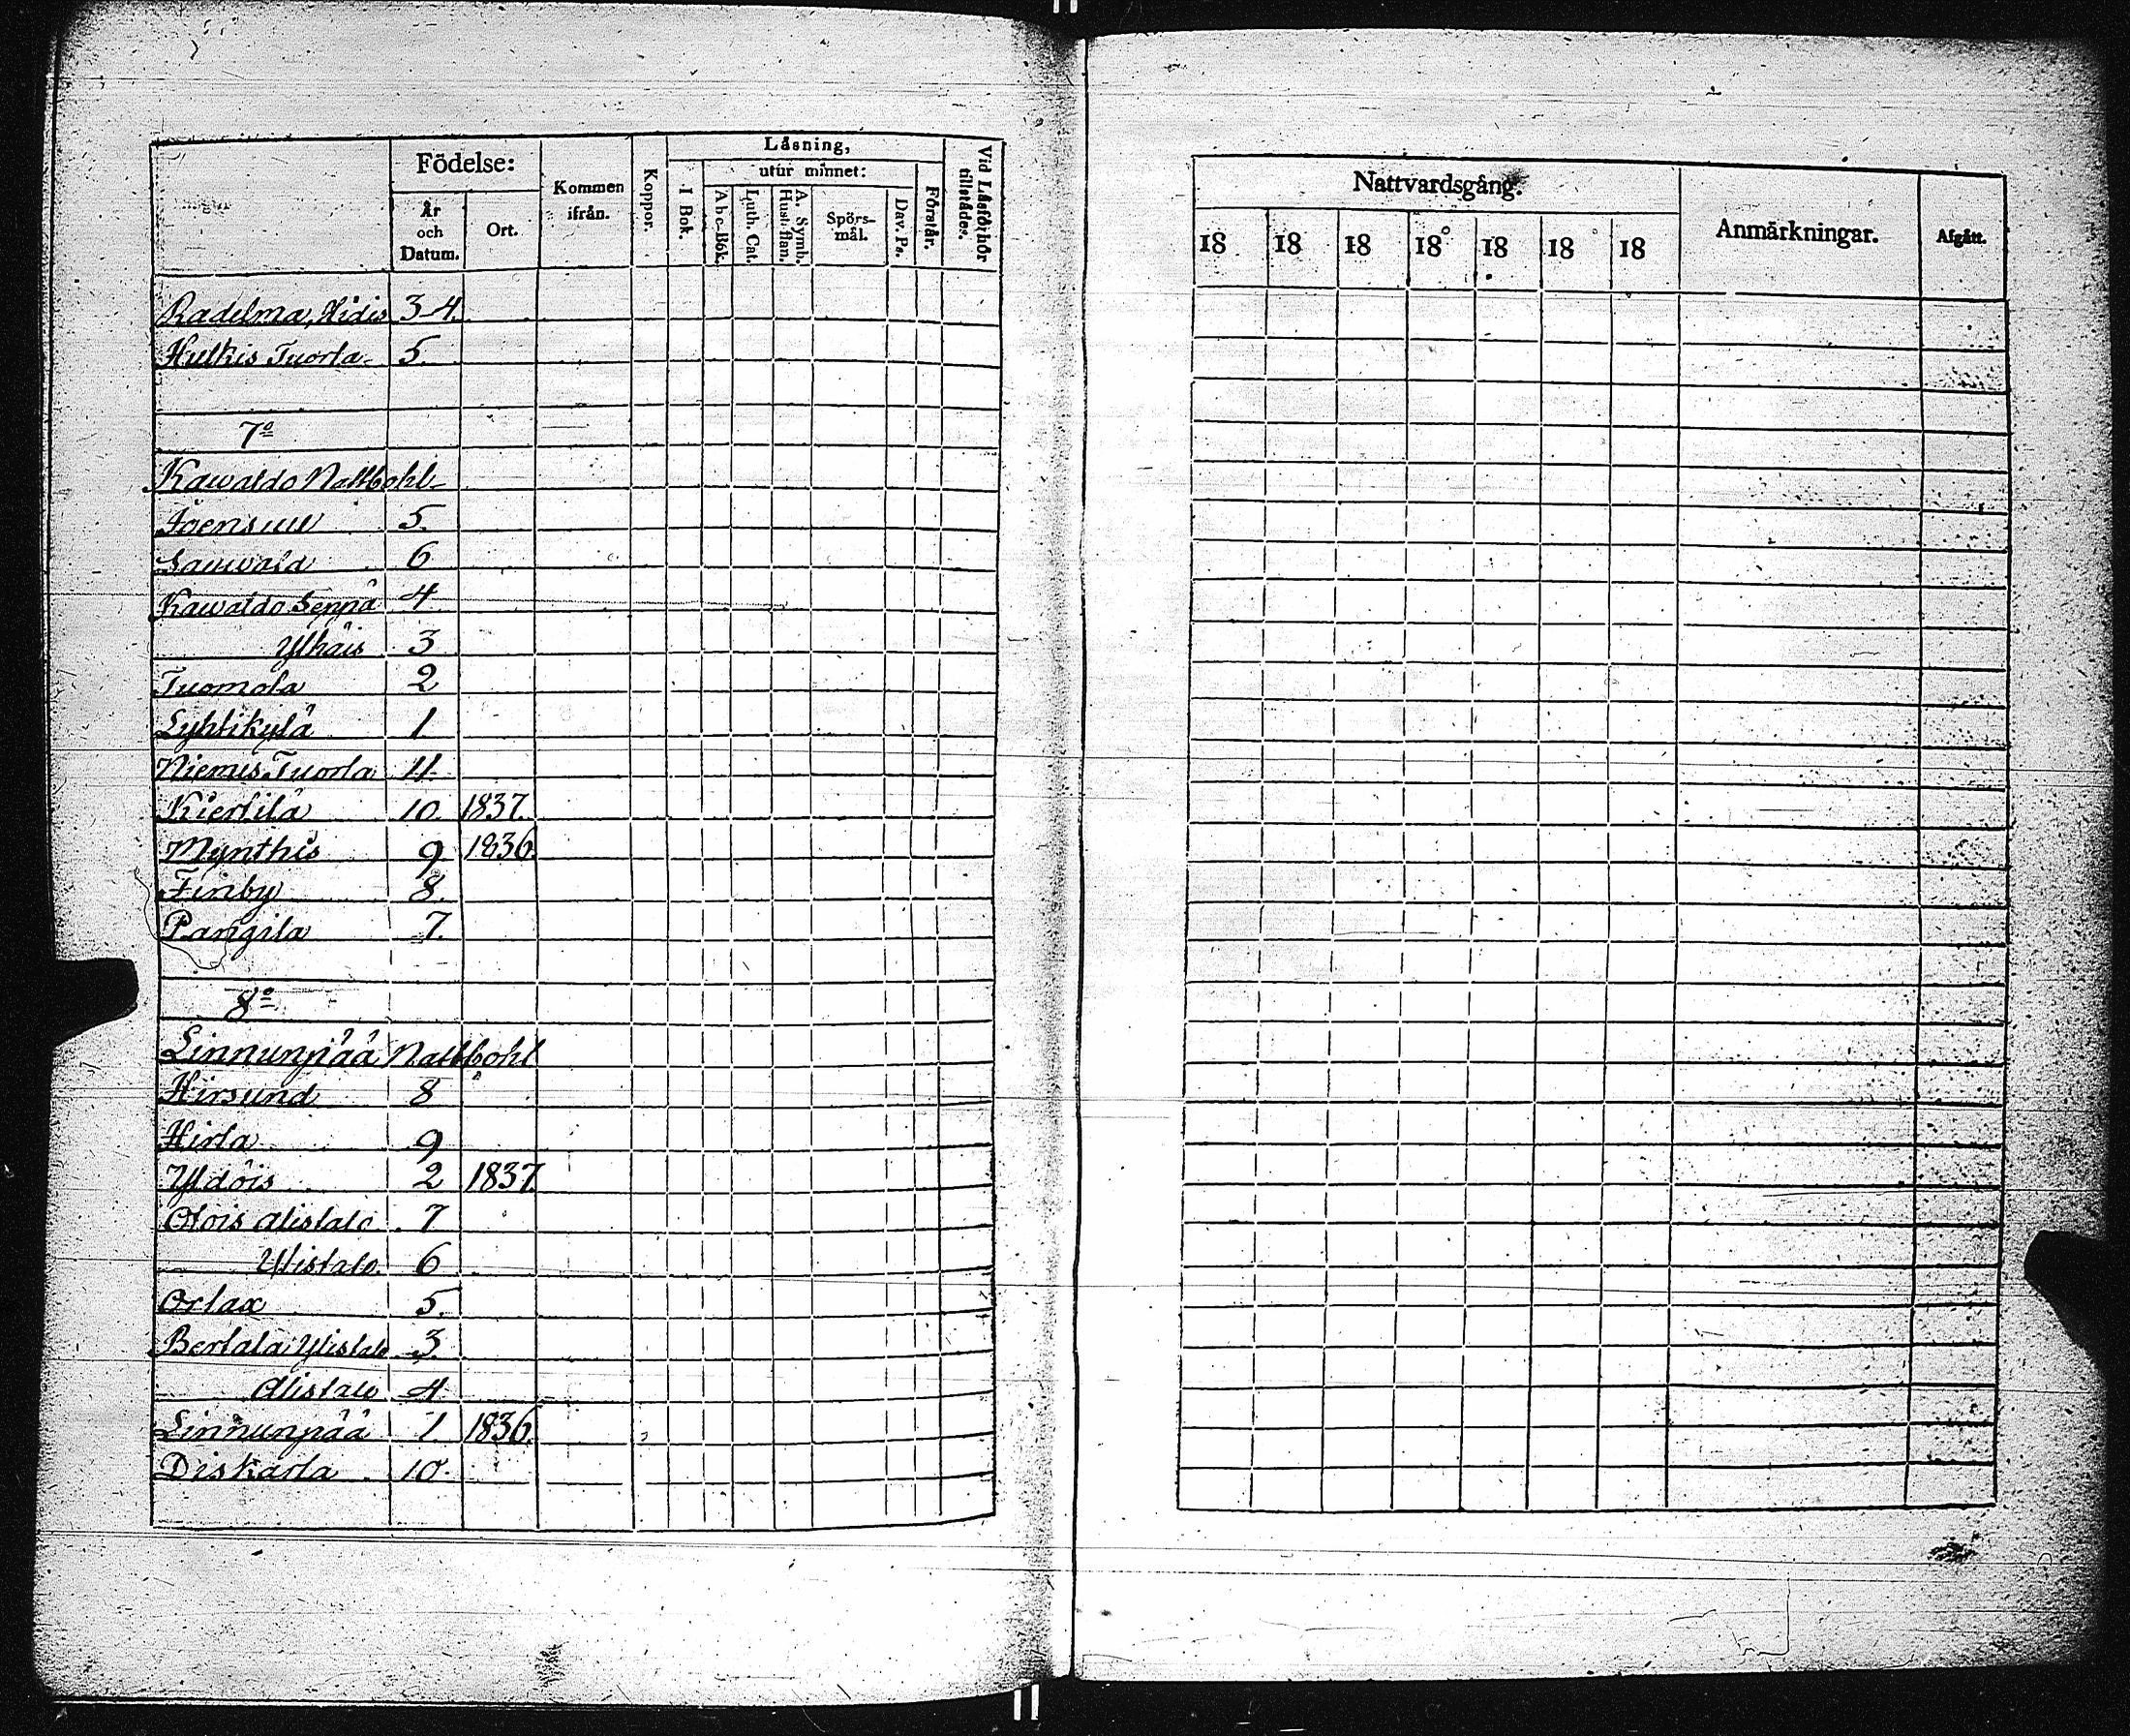 Födelse:
År och Datum.
Ort.
Kommen ifrån.
Koppor.
Läsning,
I Bok.
utur minnet:
Abc-Bok.
Luth. Cat.
A. Symb. Hust. flan.
Spörsmål.
Dav. Ps.
Förstår.
Vid Läsförhör tillstädes.
Radelma, Hidis 3-4.
Hulkis Tuorla 5.
7º
Kawaldo Nattbohl
Joensuu 5.
Sauwala 6
Kawaldo Seppä 4
Ylhäis 3
Tuomola 2
Lyhtikylä 1
Niemis Tuorla 11
Kiertilä 10. 1837.
Mynthis 9 1836.
Finby 8.
Pangila 7.
8º
Linnunpää Nattbohl
Hirsund 8
Hirla 9
Yldöis 2 1837.
Olois Alistalo 7
Ylistalo 6
Orlax 5.
Bertala Ylistalo 3.
Alistalo 4
Linnunpää 1. 1836.
Diskarla 10.
Nattvardsgång.
18 18 18 18 18 18 18
Anmärkningar.
Afgått.